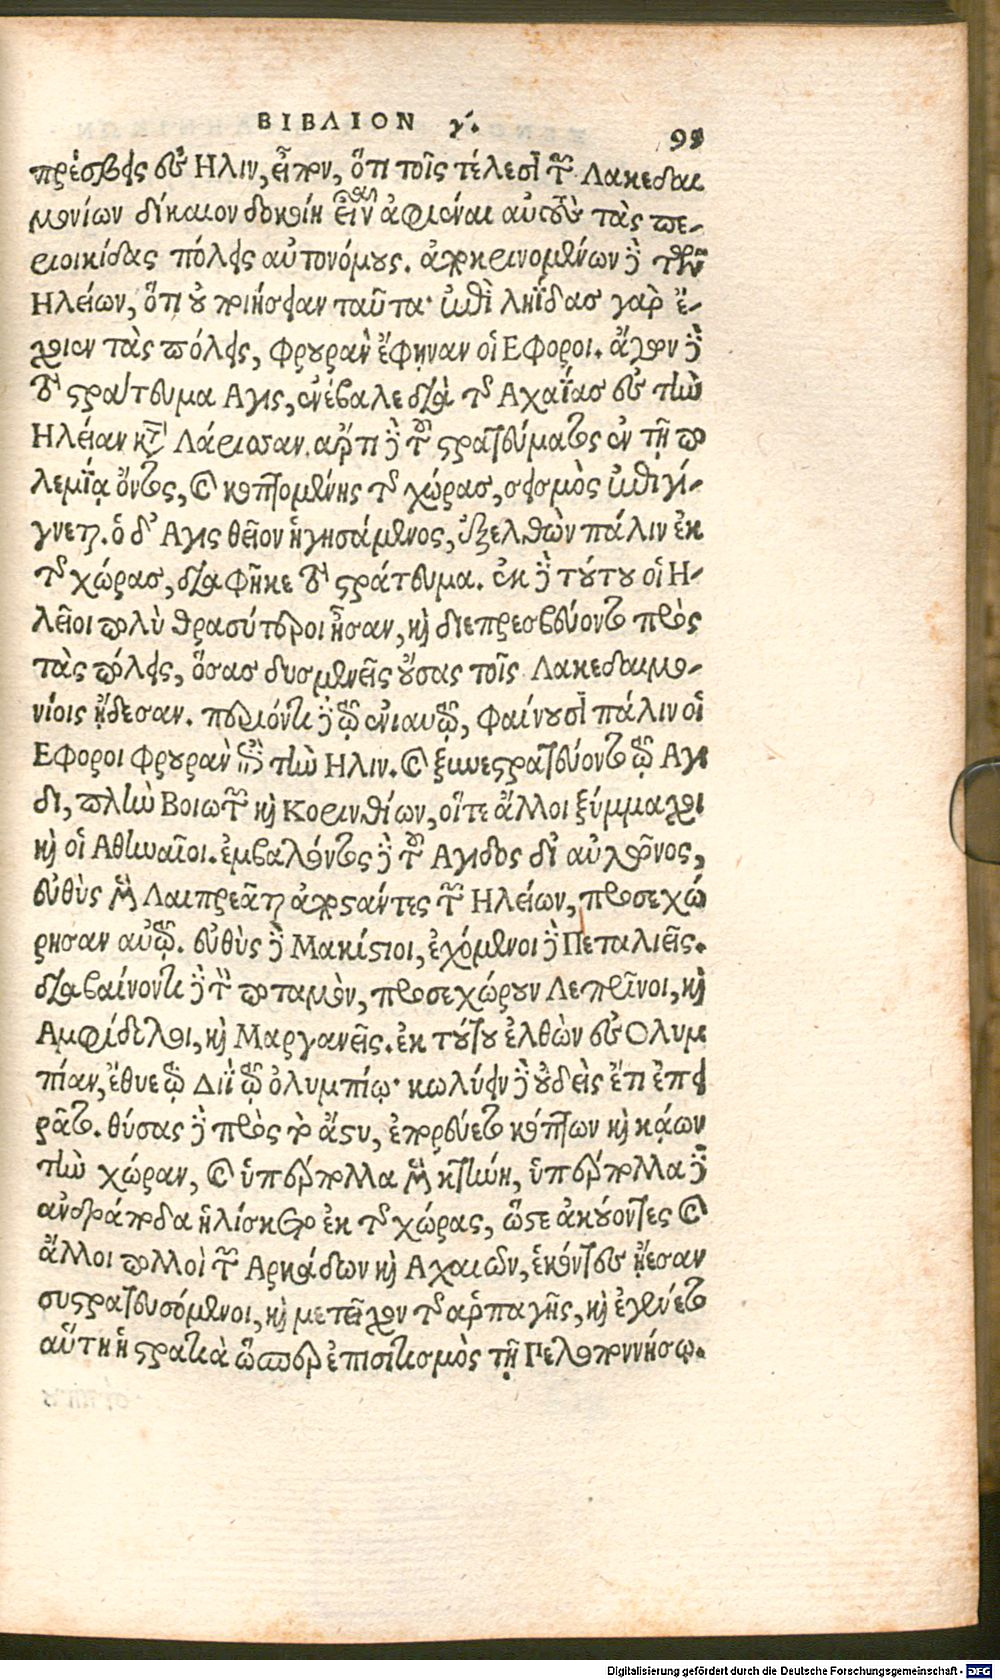 ΒΙΒΛΙΟΝ γ΄.
99
πρέσβεις εἰς Ηλιν, εἶπον, ὅτι τοῖς τέλεσι τῶν Λακεδαι
μονίων δίκαιον δοκοίη εἶναι ἀφιέναι αὐτοὺς τὰς πε-
ριοικίδας πόλεις αὐτονόμους. ἀποκρινομένων δὲ τῶν
Ηλείων, ὅτι οὐ ποιήσειαν ταῦτα· ἐπὶ ληΐδας γὰρ ἔ-
χοιεν τὰς πόλεις, φρουρὰν ἔφηναν οἱ Εφοροι. ἄγων δὲ
τὸ στράτευμα Αγις, ἐνέβαλε διὰ τῆς Αχαΐας εἰς τὴν
Ηλείαν κατὰ Λάρισσαν. ἄρτι δὲ τοῦ στρατεύματος ἐν τῇ πο
λεμίᾳ ὄντος, καὶ κοπτομένης τῆς χώρας, σεισμὸς ἐπιγί-
γνεται. ὁ δ' Αγις θεῖον ἡγησάμενος, ἐξελθὼν πάλιν ἐκ
τῆς χώρας, διαφῆκε τὸ στράτευμα. ἐκ δὲ τούτου οἱ Η-
λεῖοι πολὺ θρασύτεροι ἦσαν, καὶ διεπρεσβεύοντο πρὸς
τὰς πόλεις, ὅσας δυσμενεῖς οὔσας τοῖς Λακεδαιμο-
νίοις ᾔδεσαν. περιόντι δὲ τῷ ἐνιαυτῷ, φαίνουσι πάλιν οἱ
Εφοροι φρουρὰν ἐπὶ τὴν Ηλιν. καὶ ξυνεστρατεύοντο τῷ Αγι
δι, πλὴν Βοιωτῶν καὶ Κορινθίων, οἵτε ἄλλοι ξύμμαχοι
καὶ οἱ Αθηναῖοι. ἐμβαλόντος δὲ τοῦ Αγιδος δι' αὐλῶνος,
εὐθὺς μὲν Λαπρεᾶται ἀποστάντες τῶν Ηλείων, προσεχώ
ρησαν αὐτῷ. εὐθὺς δὲ Μακίστιοι, ἐχόμενοι δὲ Πεταλιεῖς.
διαβαίνοντι δὲ τὸν ποταμὸν, προσεχώρουν Λεπρῖνοι, καὶ
Αμφίδολοι, καὶ Μαργανεῖς. ἐκ τούτου ἐλθὼν εἰς Ολυμ
πίαν, ἔθυε τῷ Διῒ τῷ ὀλυμπίῳ· κωλύειν δὲ οὐδεὶς ἔτι ἐπει
ρᾶτο. θύσας δὲ πρὸς τὸ ἄστυ, ἐπορεύετο κόπτων καὶ κάων
τὴν χώραν, καὶ ὑπέρπολλα μὲν κτήνη, ὑπέρπολλα δὲ
ἀνδράποδα ἡλίσκετο ἐκ τῆς χώρας, ὥστε ἀκούοντες καὶ
ἄλλοι πολλοὶ τῶν Αρκάδων καὶ Αχαιῶν, ἑκόντες ᾔεσαν
συστρατευσόμενοι, καὶ μετεῖχον τῆς ἁρπαγῆς, καὶ ἐγένετο
αὕτη ἡ στρατιὰ ὥσπερ ἐπισιτισμὸς τῇ Πελοποννήσῳ.
Digitalisierung gefördert durch die Deutsche Forschungsgemeinschaft - DFG